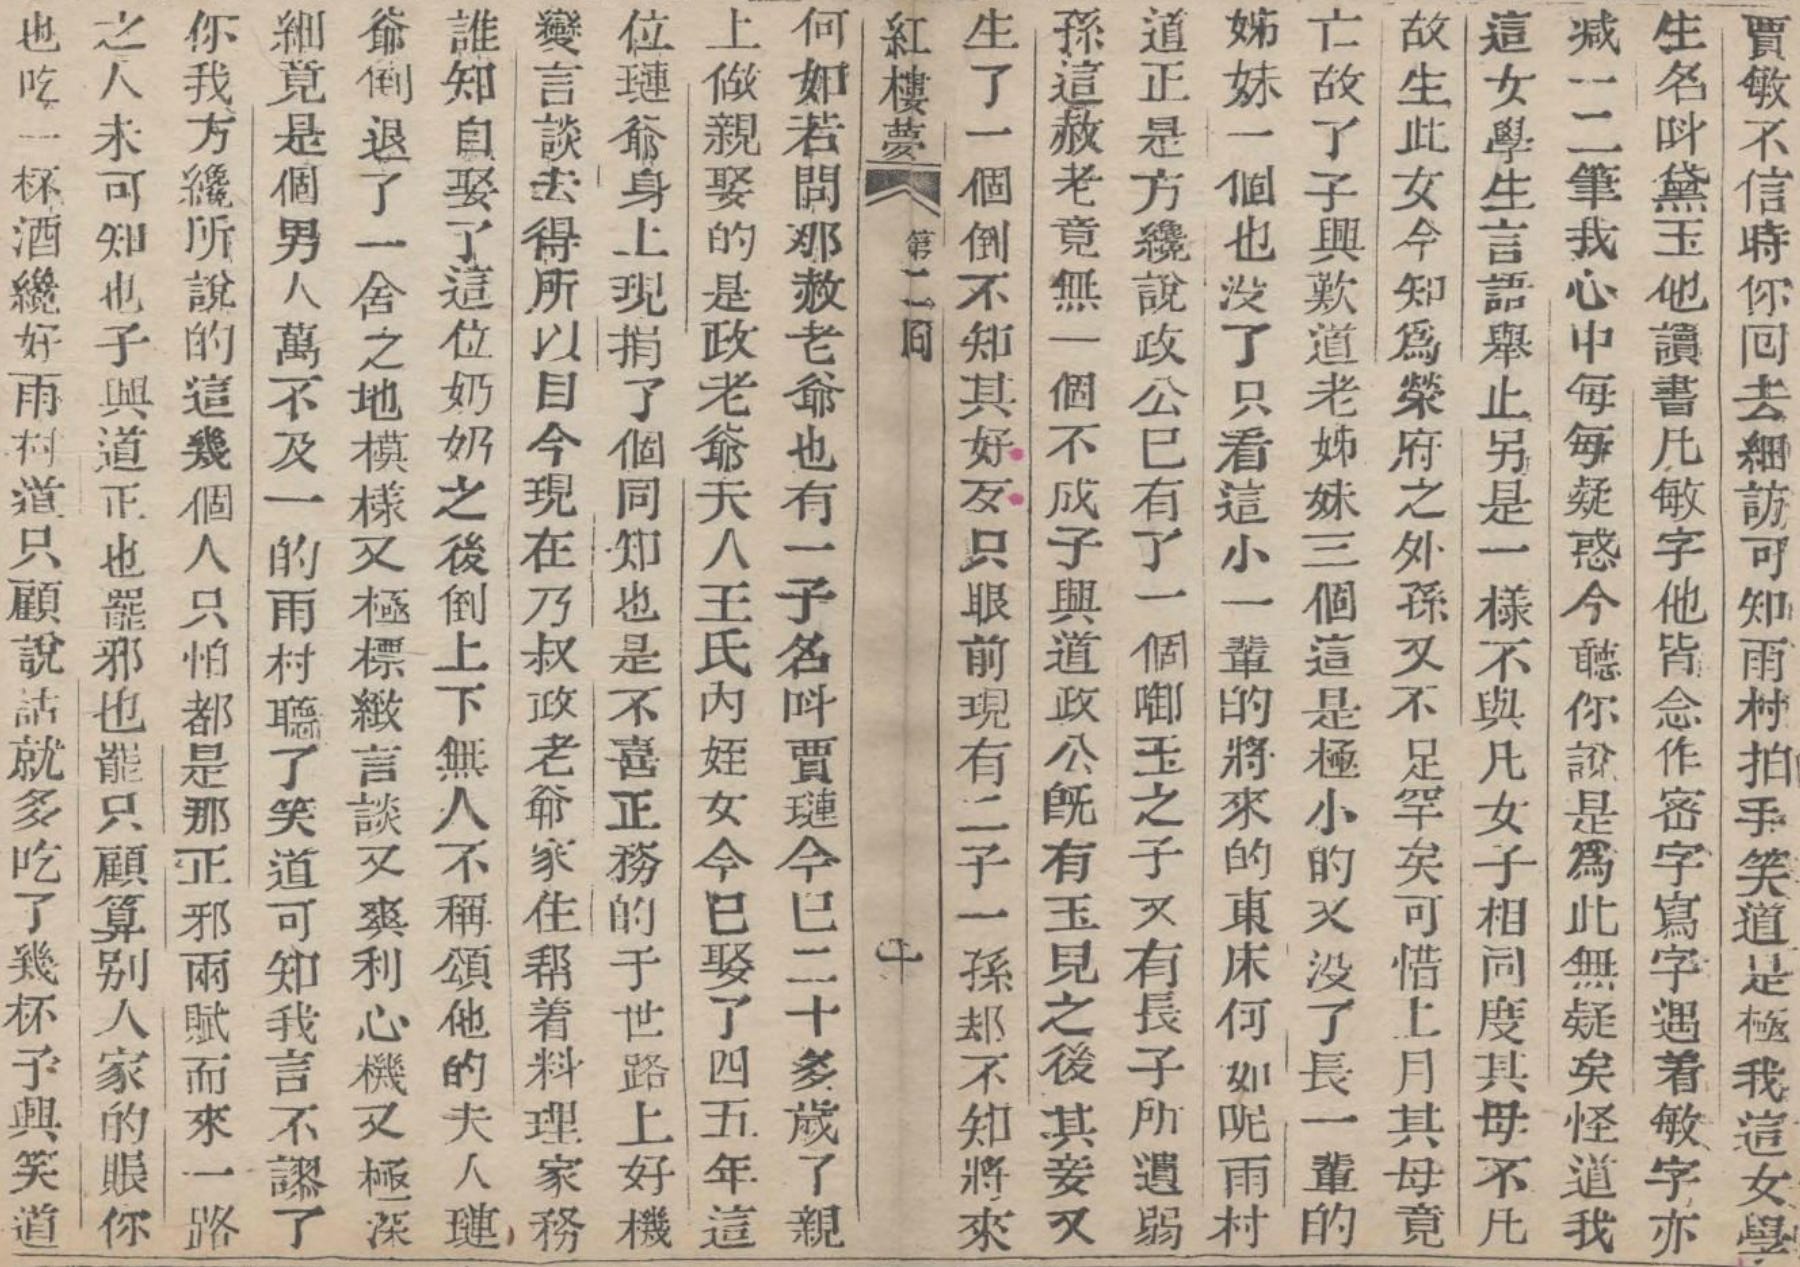 賈敏不信時你回去細訪可知雨村拍手笑道是極我這女學
生名呌黛玉他讀書凡敏字他皆念作密字寫字遇着敏字亦
减一二筆我心中每每疑惑今聽你說是爲此無疑矣怪道我
這女學生言語舉止另是一樣不與凡女子相同度其母不凡
故生此女今知爲榮府之外孫又不足罕矣可惜上月其母竟
亡故了子興歎道老姊妹三個這是極小的又没了長一輩的
姊妹一個也没了只看這小一輩的將來的東床何如呢雨村
道正是方纔說政公巳有了一個啣玉之子又有長子所遺弱
孫這赦老竟無一個不成子興道政公既有玉兒之後其妾又
生了一個倒不知其好歹只眼前現有二子一孫却不知將來
紅樓夢
第二囘
十
何如若問那赦老爺也有一子名呌賈璉今巳二十多歲了親
上做親娶的是政老爺夫人王氏內姪女今巳娶了四五年這
位璉爺身上現捐了個同知也是不喜正務的于世路上好機
變言談去得所以目今現在乃叔政老爺家住帮着料理家務
誰知自娶了這位奶奶之後倒上下無人不稱頌他的夫人璉
爺倒退了一舍之地模樣又極標緻言談又爽利心機又極深
細竟是個男人萬不及一的雨村聽了笑道可知我言不謬了
你我方纔所說的這幾個人只怕都是那正邪兩賦而來一路
之人未可知也子興道正也罷邪也罷只顧算别人家的賬你
也吃一杯酒纔好雨村道只顧說話就多吃了幾杯子興笑道